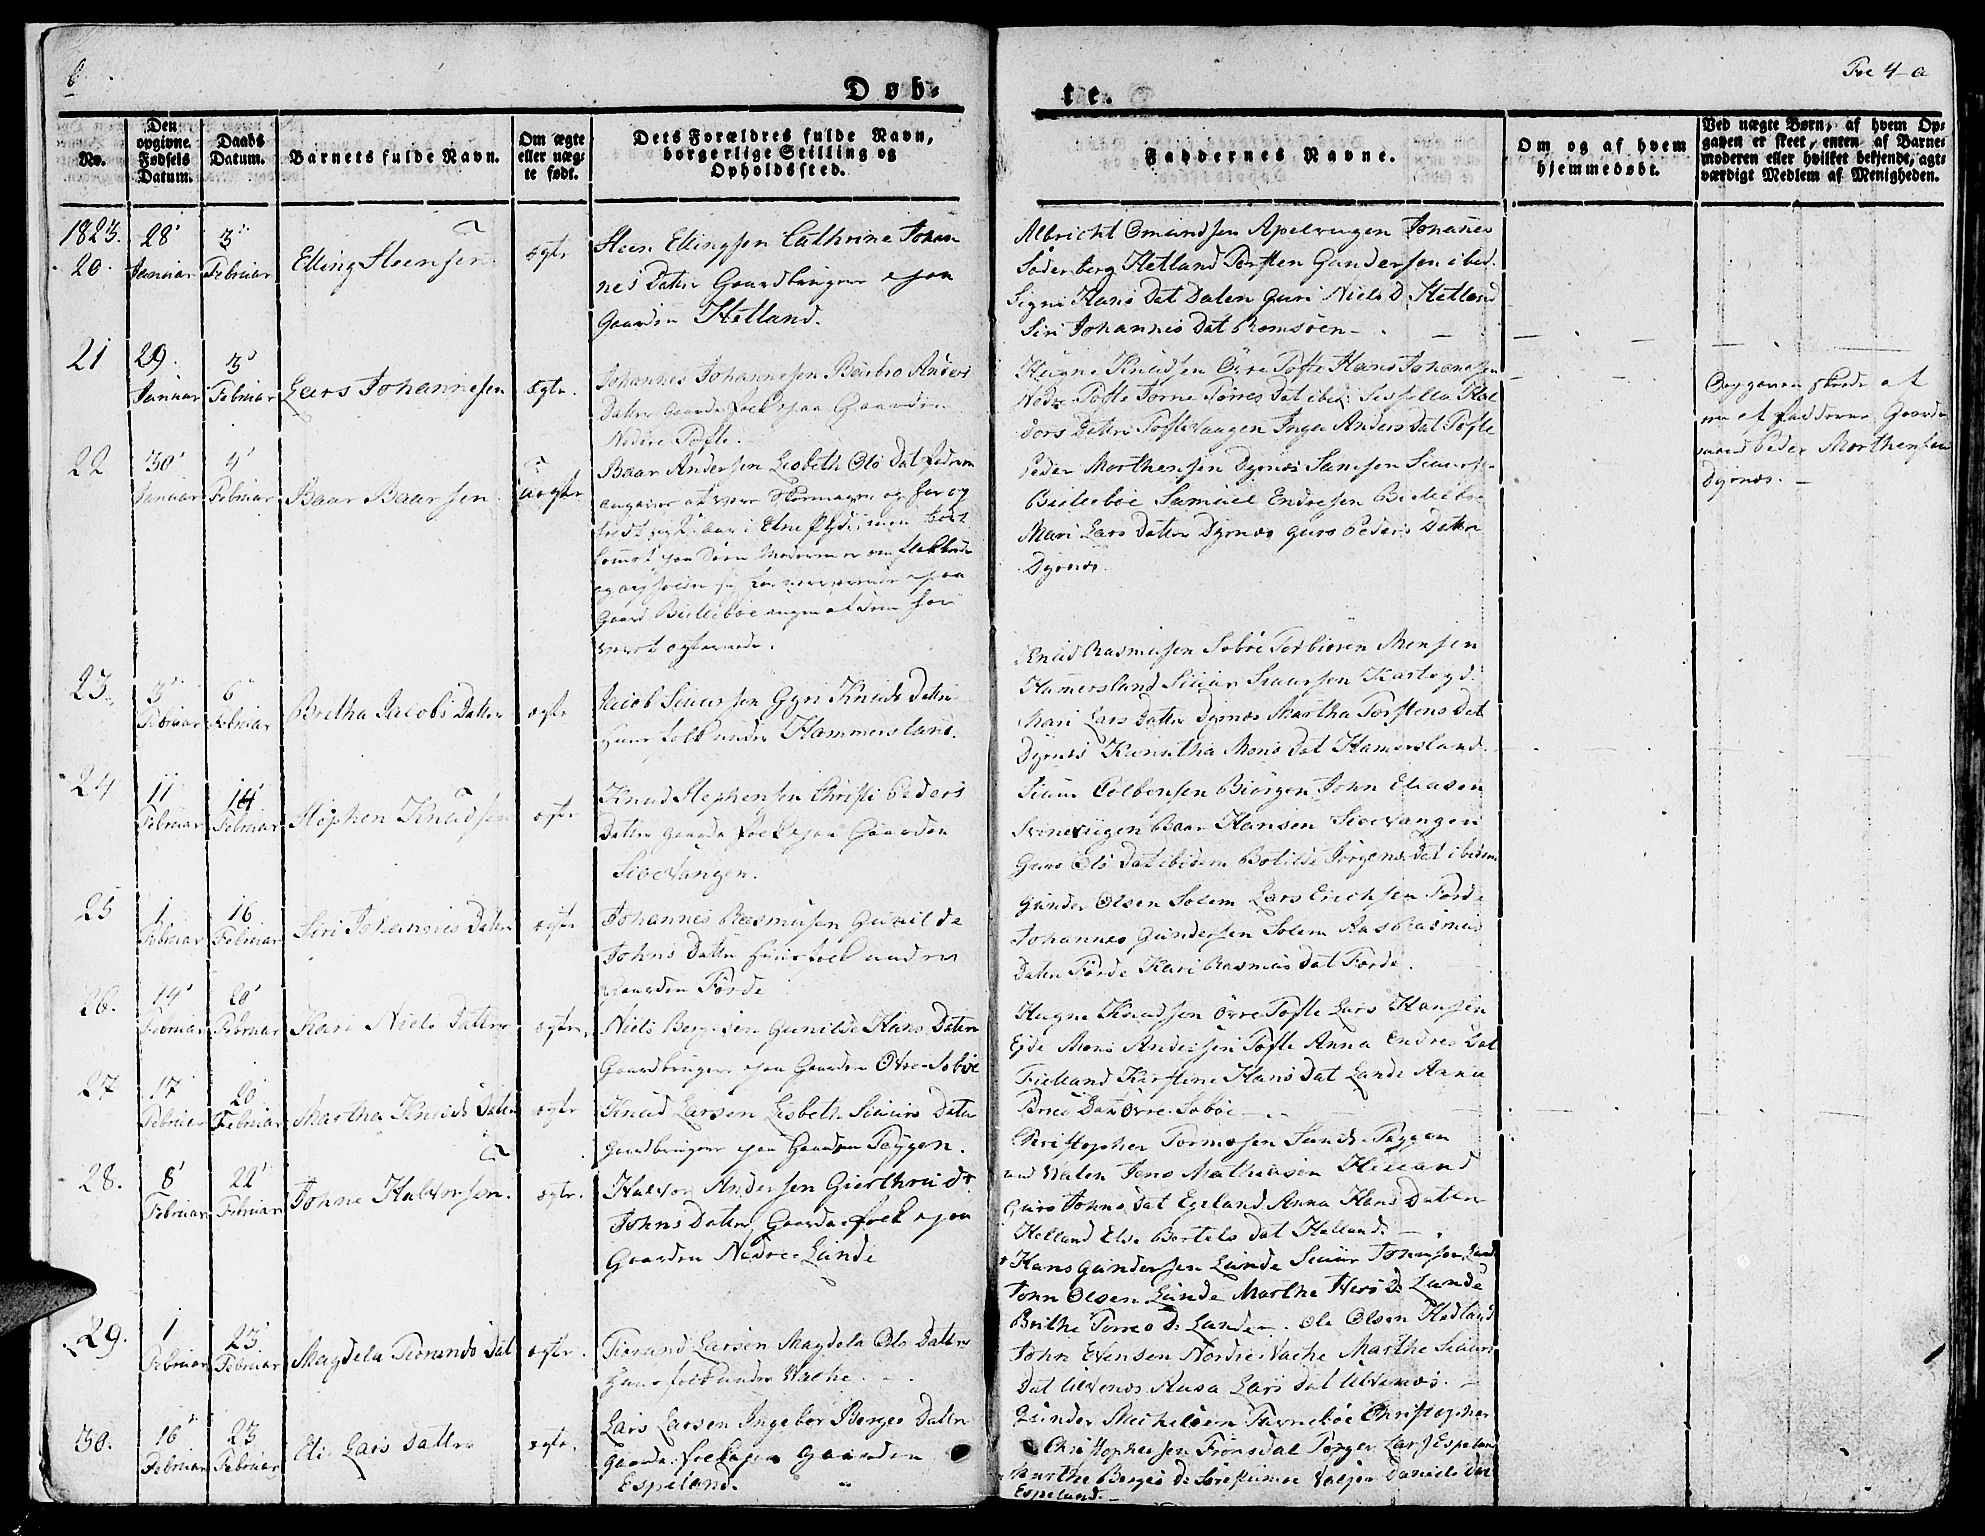 6
Døb-
te.
Fol 4-a
No.
Den opgivne Fødsels Datum.
Daabs Datum.
Barnets fulde Navn.
Om ægte eller uægte født.
Dets Forældres fulde Navn, borgerlige Stilling og Opholdssted.
Faddernes Navne.
Om og af hvem hjemmedøbt.
Ved uægte Børn, af hvem Opgaven er skeet, enten af Barnemoderen eller hvilket bekjendt, agtværdigt Medlem af Menigheden.
1823.
20. 28 Januar 3 Februar Elling Steensen ægte
Steen Ellingsen Cathrine Johan
nes Datter Gaardbruger paa
Gaarden Hetland.
Albricht Omundsen Apelvugen Johanes
Søderberg Hetland Torsten Gundersen ibed.
Signi Hans Dat Dalen Guri Niels D Hetland
Siri Johannis Dat Romsøen
21 29. Januar 3 Februar Lars Johannesen ægte.
Johannes Johannesen Barbro Anders
Datter Gaardsfolk paa Gaarden
Nedre Tofte.
Hougne Knudsen Øvre Tofte Hans Johanesen
Nedre Tofte Torne Torres Dat ibed: Sissella Hal
dors Datter Toftevaagen Inga Anders Dat Tofte
Opgaven skede at
en af fadderne
Peder Morthensen
Dyrnes.
22 30 Januar 4 Februar Baar Baarsen uægte
Baar Andersen Lisbeth Ols Dat
angiver at være
i Etne
Gaard Bielleboe
Peder Morthensen Dyrnes Samson Siursen
Bielleboe Samuel Endresen Bielleboe
Mari Lars Datter Dyrnes Guro Peders Datter
Dyrnes
23. 3 Februar 6 Februar Bretha Jacobs Datter ægte
Jacob Siursen Gyri Knuds Datter
Huusfolk under Hammersland.
Knud Rasmusen Søboe Torbiøren Monsen
Hamersland Siur Siursen Kartvgd.
Mari Lars Datter Dyrnes Martha Torstens Dat
Dyrnes Kunutha Mons Dat Hamersland.
24 11 Februar 14 Februar Stephen Knudsen ægte
Knud Stephensen Christi Peders
Datter Gaardsfolk paa Gaarden
Sioevangen.
Siur Colbensen Biørgen John Eliasen
Svinevigen Baar Hansen Sioevangen
Guro Ols Dat ibidem Botilde Jørgens Dat ibidem
25 1 Februar 16 Februar Siri Johannes Datter ægte
Johannes Rasmusen Gunilde
Johns Datter Huusfolk under
Gaarden Førde
Gunder Olsen Solem Lars Erichsen Førde
Johannes Gundersen Solem Aasa Rasmus
Daten Førde Kari Rasmus Dat Førde.
26. 14 Februar 20 Februar Kari Niels Datter ægte.
Niels Bergesen Gunilde Hans Datter
Gaardbruger paa Gaarden Øvre-Søboe
Hugne Knudsen Øvre Tofte Lars Hansen
Eyde Mons Andersen Tofte Anna Endres Dat
Fielland Kirstine Hans Dat Lande Anna
Torres Dat Øvre Søboe
27 17 Februar 20 Februar Martha Knuds Datter ægte
Knud Larsen Lisbeth Siurs Datter
Gaardbruger paa Gaarden Tøggen.
Christopher Tormosen Sunde Tøggen
Jens Mathiasen Helland
Guro Johns Dat Egeland Anna Hans Datter
Helland Else Bertels Dat Helland.
28. 8 Februar 22 Februar Johne Halvorsen. ægte.
Halvor Andersen Gierthrud
Johns Datter Gaardsfolk paa
Gaarden Nedre-Lunde
Hans Gundersen Lunde Siur Johnsen Lund
John Olsen Lunde Marthe Hers D Lunde
Brithe Torres D Lunde. Ole Olsen Hedland
29. 1 Februar 23 Februar Magdela Tiorands Dat ægte.
Tiorand Larsen Magdela Ols Datter
Huusfolk under Vache.
John Evensen Nordre Vache Marthe Siurs
Dat Ulvenes Aasa Lars Dat Ulvenes.
30. 16 Februar 23 Februar Eli Lars Datter ægte.
Lars Larsen Ingebor Berges Datter
Gaardsfolk paa Gaarden
Espeland.
Gunder Michelsen Tarneboe Christopher
Christophersen Frønsdal Torger Lars Espeland
Marthe Berges D Daniels Dat
Espeland.